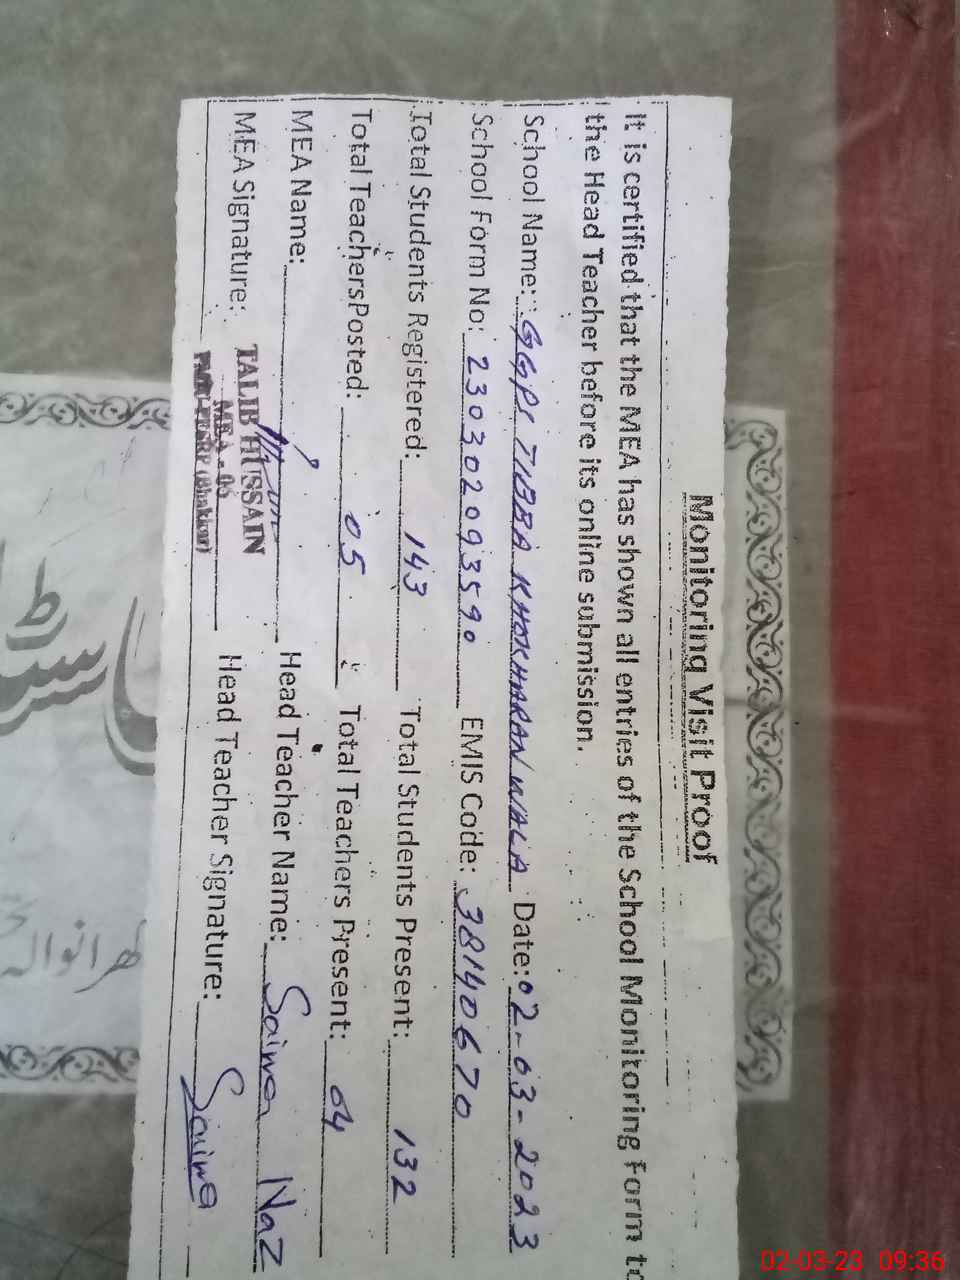 Monitoring Visit Proof
It is certified that the MEA has shown all entries of the School Monitoring Form to
the Head Teacher before its online submission.
School Name: GGPS TIBBA KHOKHARAN WALA Date: 02-03-2023
School Form No: 230302093590 EMIS Code: 38140670
Total Students Registered: 143 Total Students Present: 132
Total Teachers Posted: 05 Total Teachers Present: 04
MEA Name: Head Teacher Name: Saima Naz
MEA Signature: Head Teacher Signature: Saima
TALIB HUSSAIN
MEA - 06
(Bhakkar)
02-03-23 09:36